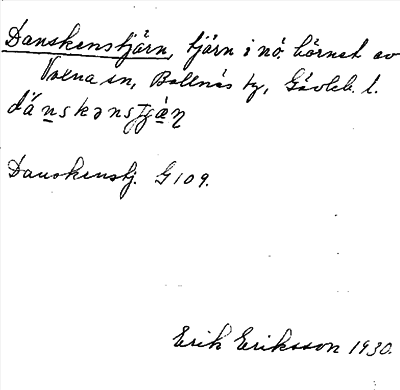 Danskenstjärn, tjärn i nö. hörnet av
Volna sn, Bollnäs tg, Gävleb. l.
dánskənstjä̀ṇ
Danskenstj. G109.
Erik Eriksson 1930.